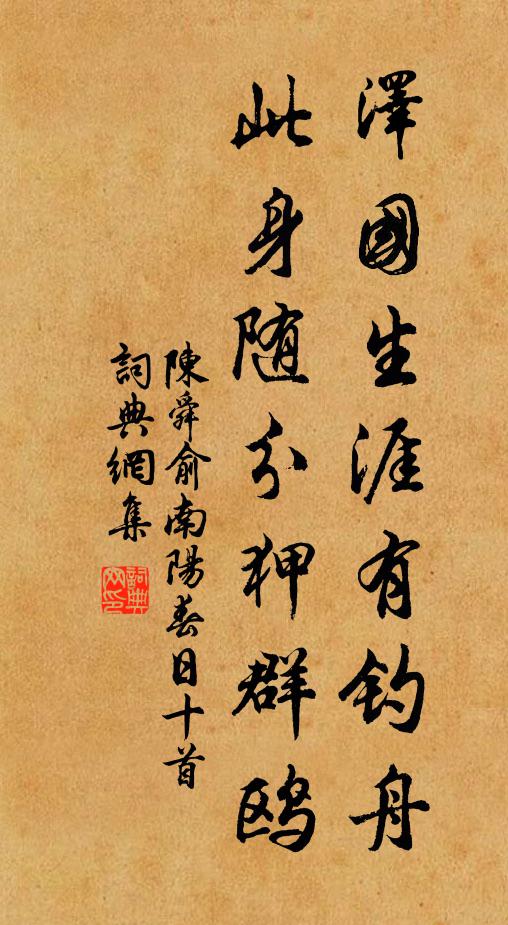 澤國生涯有釣舟
此身随分狎群鸥
陳舜俞南陽春日十首
詞典網集
詞典
网印